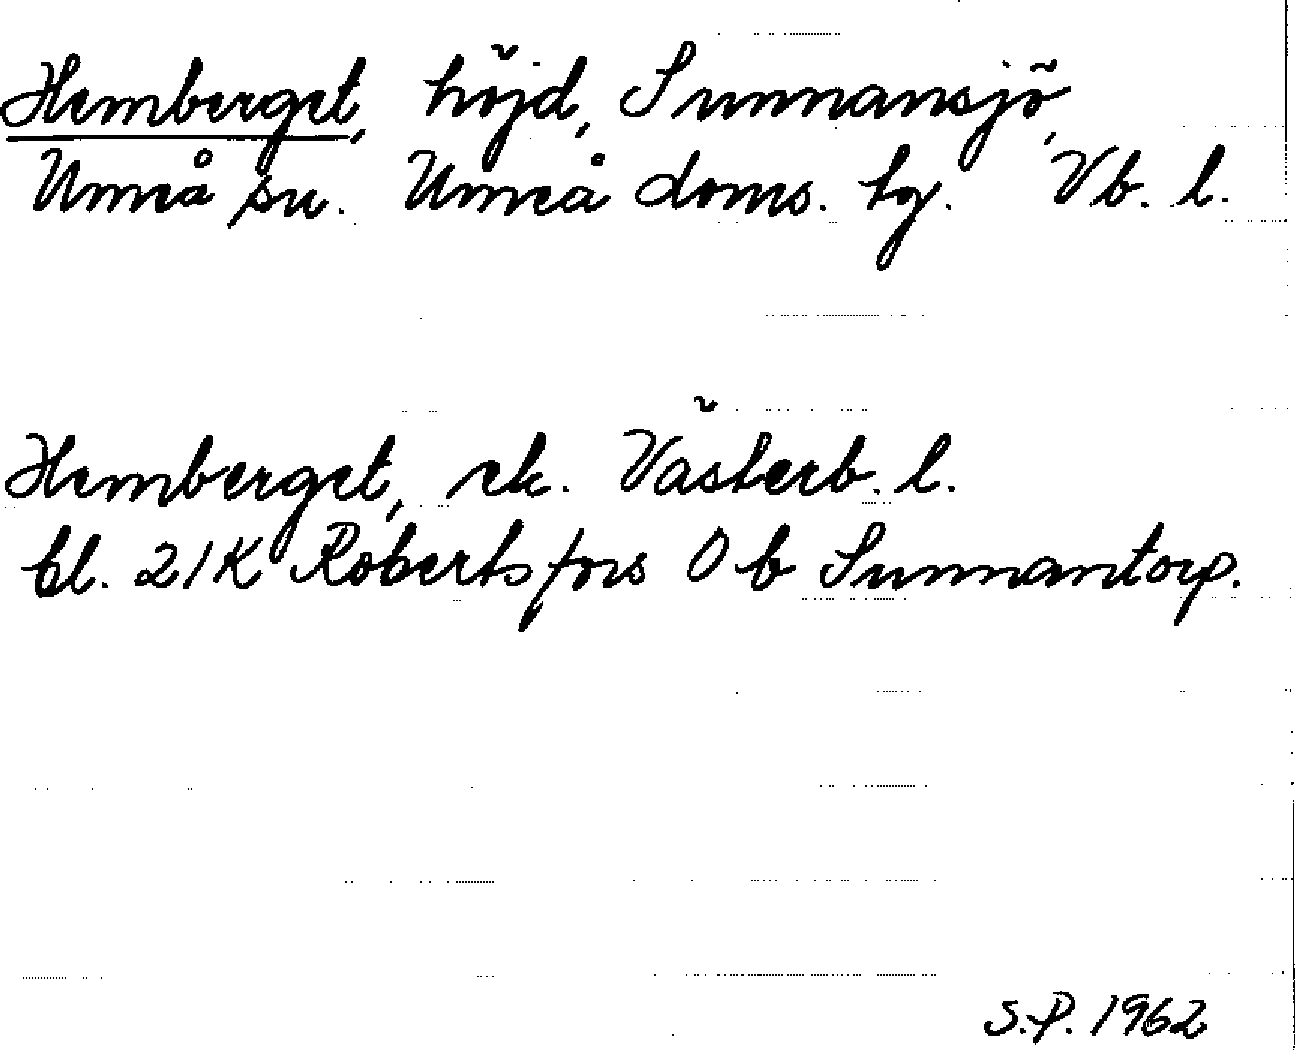 Hemberget, höjd, Sunnansjö,
Umeå sn. Umeå doms. tg. Vb. l.
Hemberget, ek. Västerb. l.
bl. 21K Robertsfors 0 b Sunnantorp.
S.P. 1962